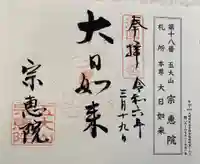 第十八番 五大山 宗恵院
札所 本尊 大日如来
奉拝 令和六年
三月十九日
大日如来
宗恵院